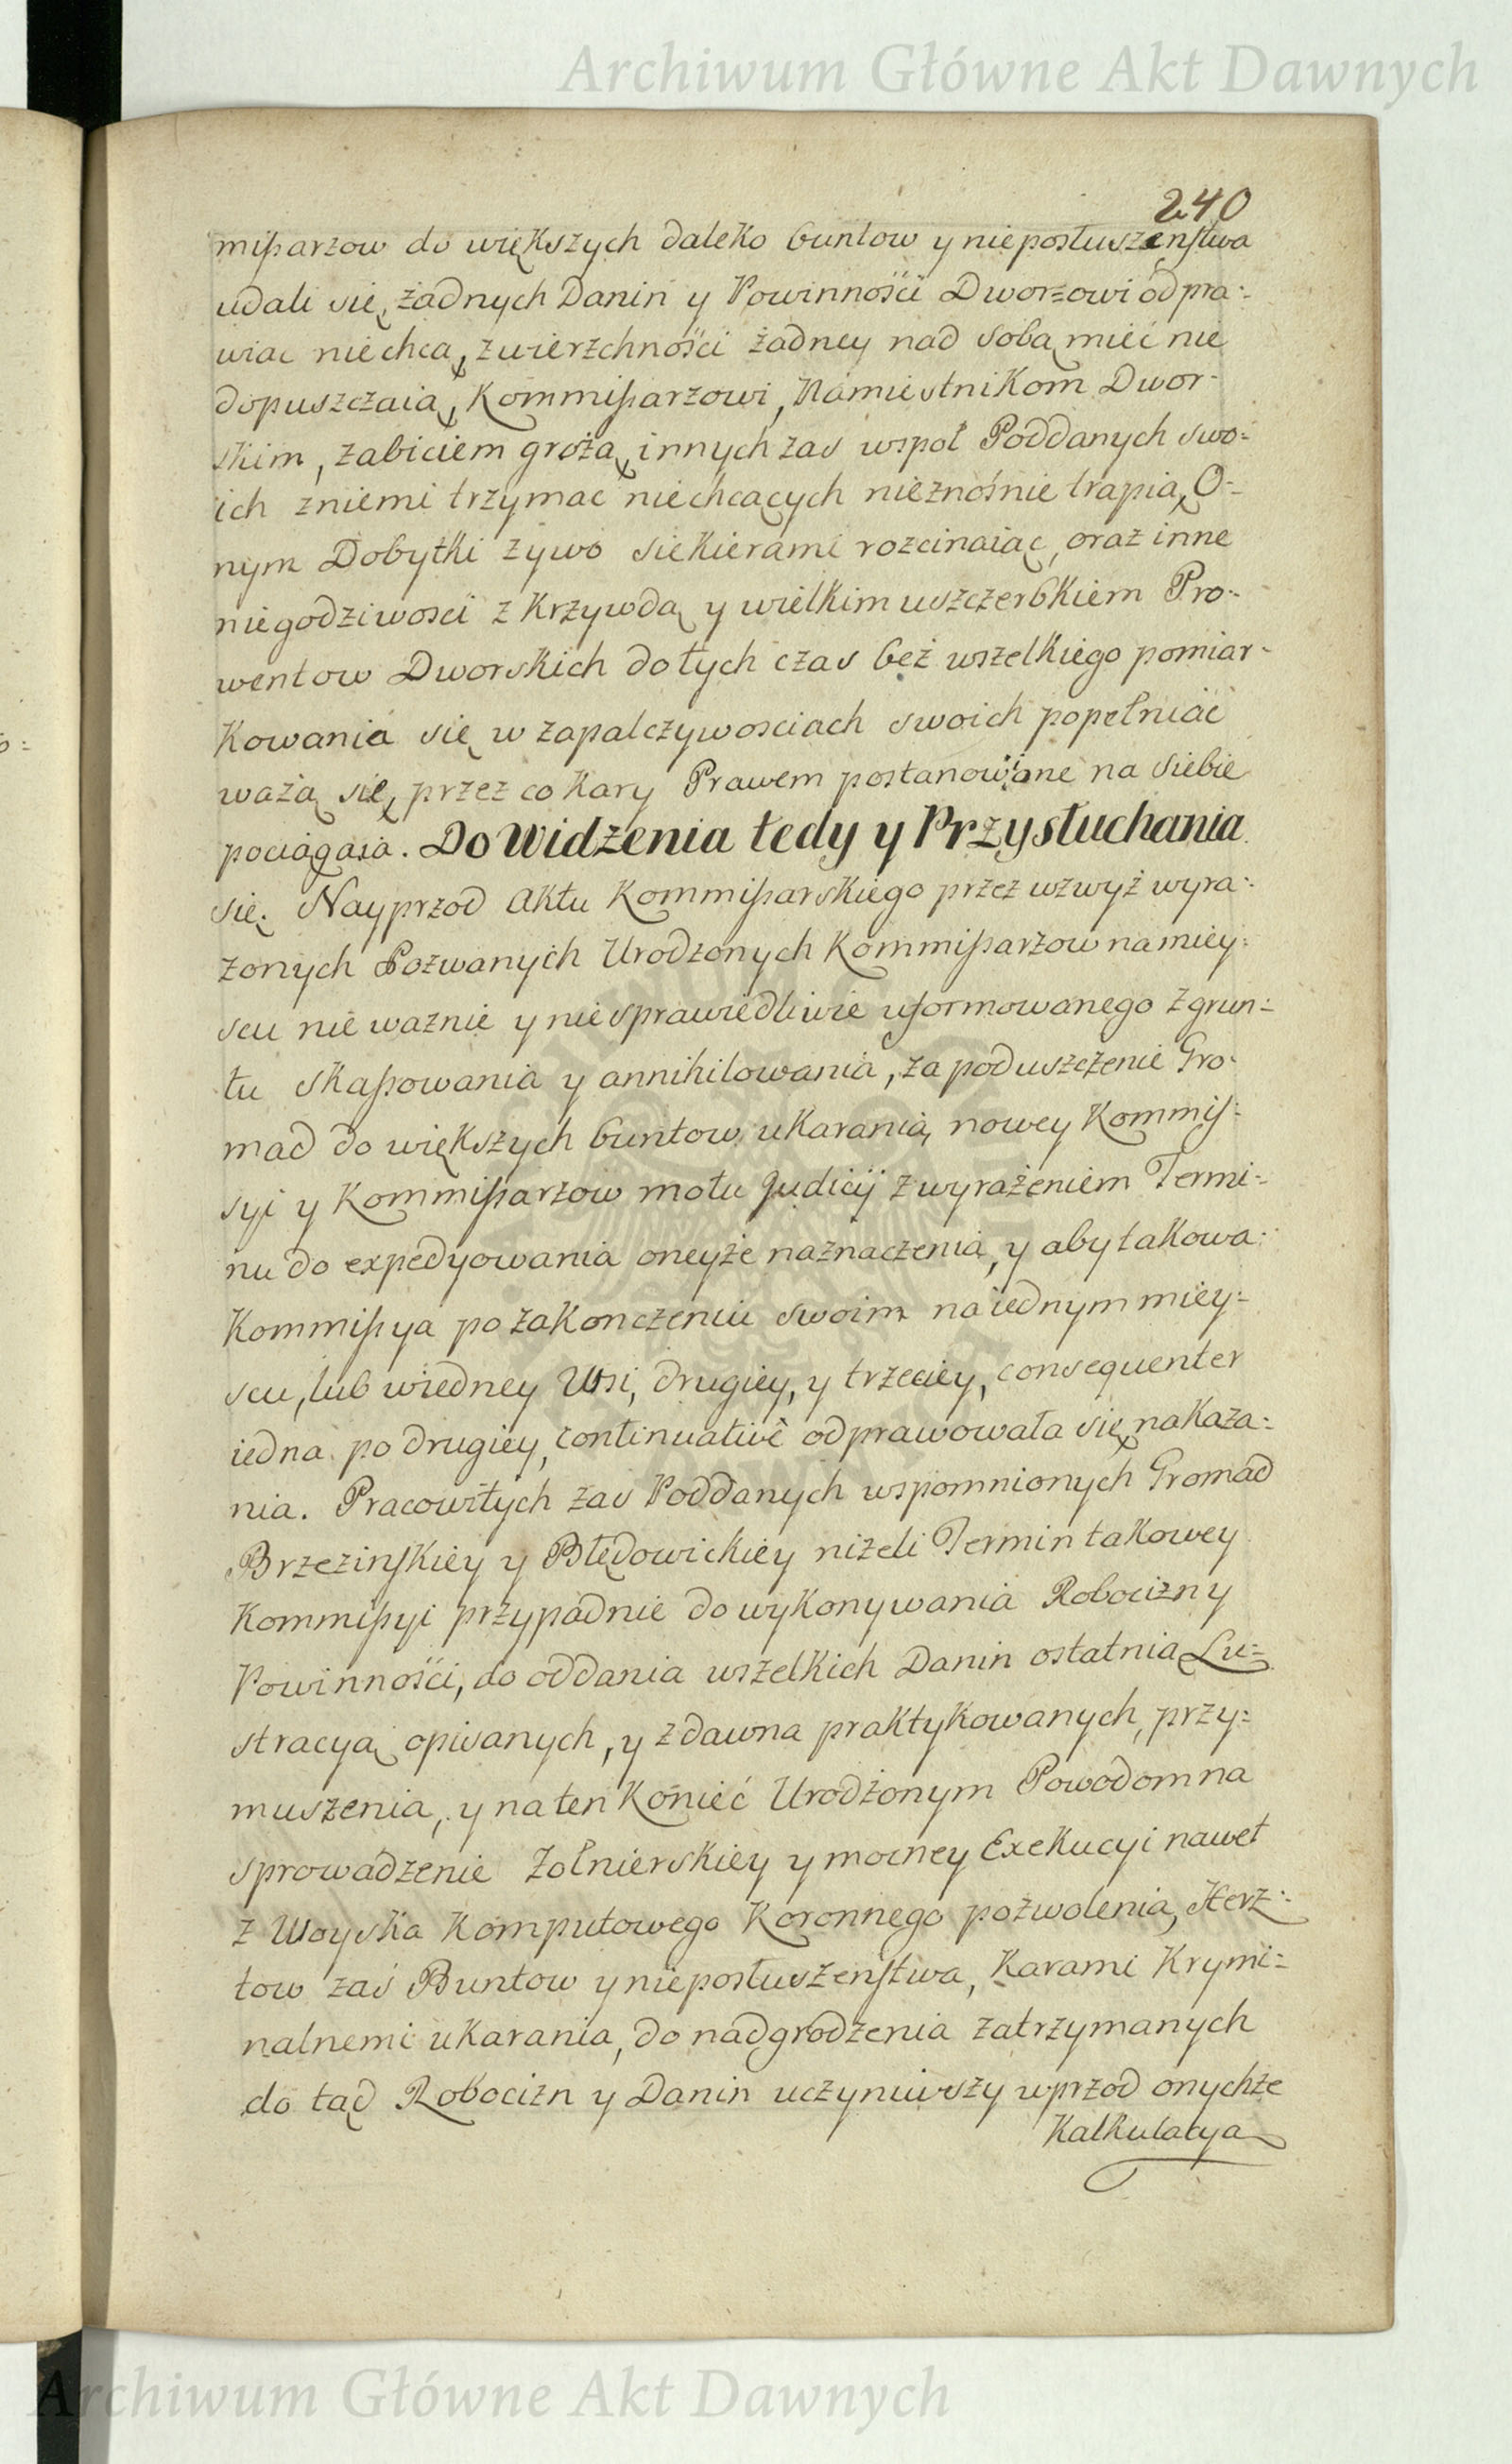 Archiwum Główne Akt Dawnych
240
mißarzow do większych daleko buntow y nieposłuszenstwa
udali się, żadnych Danin y Powinności Dworzowi odpra:
wiac niechcą, zwierzchności żadney nad sobą mieć nie
dopuszczaią, Kommißarzowi, Namiestnikom Dwor-
skim, zabiciem grożą, innych zas wspoł Poddanych swo:
ich zniemi trzymac niechcących nieznośnie trapią, O:
nym Dobytki żywo siekierami rozcinaiąc, oraz inne
niegodziwosci z Krzywdą y wielkim uszczerbkiem Pro:
wentow Dworskich do tych czas bez wszelkiego pomiar-
Kowania się w zapalczywosciach swoich popełniać
ważą się, przez co Kary Prawem postanowione na siebie
pociągaią. Do Widzenia tedy y Przysłuchania
się. Nayprzod Aktu Kommißarskiego przez wzwyż wyra:
żonych Pozwanych Urodzonych Kommißarzow na miey:
scu nie waznie y niesprawiedliwie uformowanego z grun:
tu skaßowania y annihilowania, za poduszczenie Gro:
mad do większych buntow ukarania, nowey Kommis:
syi y Kommißarzow motu Judicij z wyrażeniem Termi:
nu do expedyowania oneyże naznaczenia, y aby takowa:
Kommißya po zakonczeniu swoim na iednym miey:
scu, lub wiedney Wsi, drugiey, y trzeciey, consequenter
iedna po drugiey, continuativè odprawowała się, nakaza:
nia. Pracowitych zas Poddanych wspomnionych Gromad
Brzezinskiey y Błędowickiey niżeli Termin takowey
Kommißyi przypadnie do wykonywania Robocizny
Powinności, do oddania wszelkich Danin ostatnią Lu:
stracyą opisanych, y zdawna praktykowanych, przy:
muszenia, y na ten koniec Urodzonym Powodom na
sprowadzenie Żołnierskiey y mocney Exekucyi nawet
z Woyska Komputowego Koronnego pozwolenia, Herz:
tow zaś Buntow y nieposłuszenstwa, Karami Krymi:
nalnemi ukarania, do nadgrodzenia zatrzymanych
do tąd Robocizn y Danin uczyniwszy wprzod onychże
Kalkulacyą
Archiwum Główne Akt Dawnych